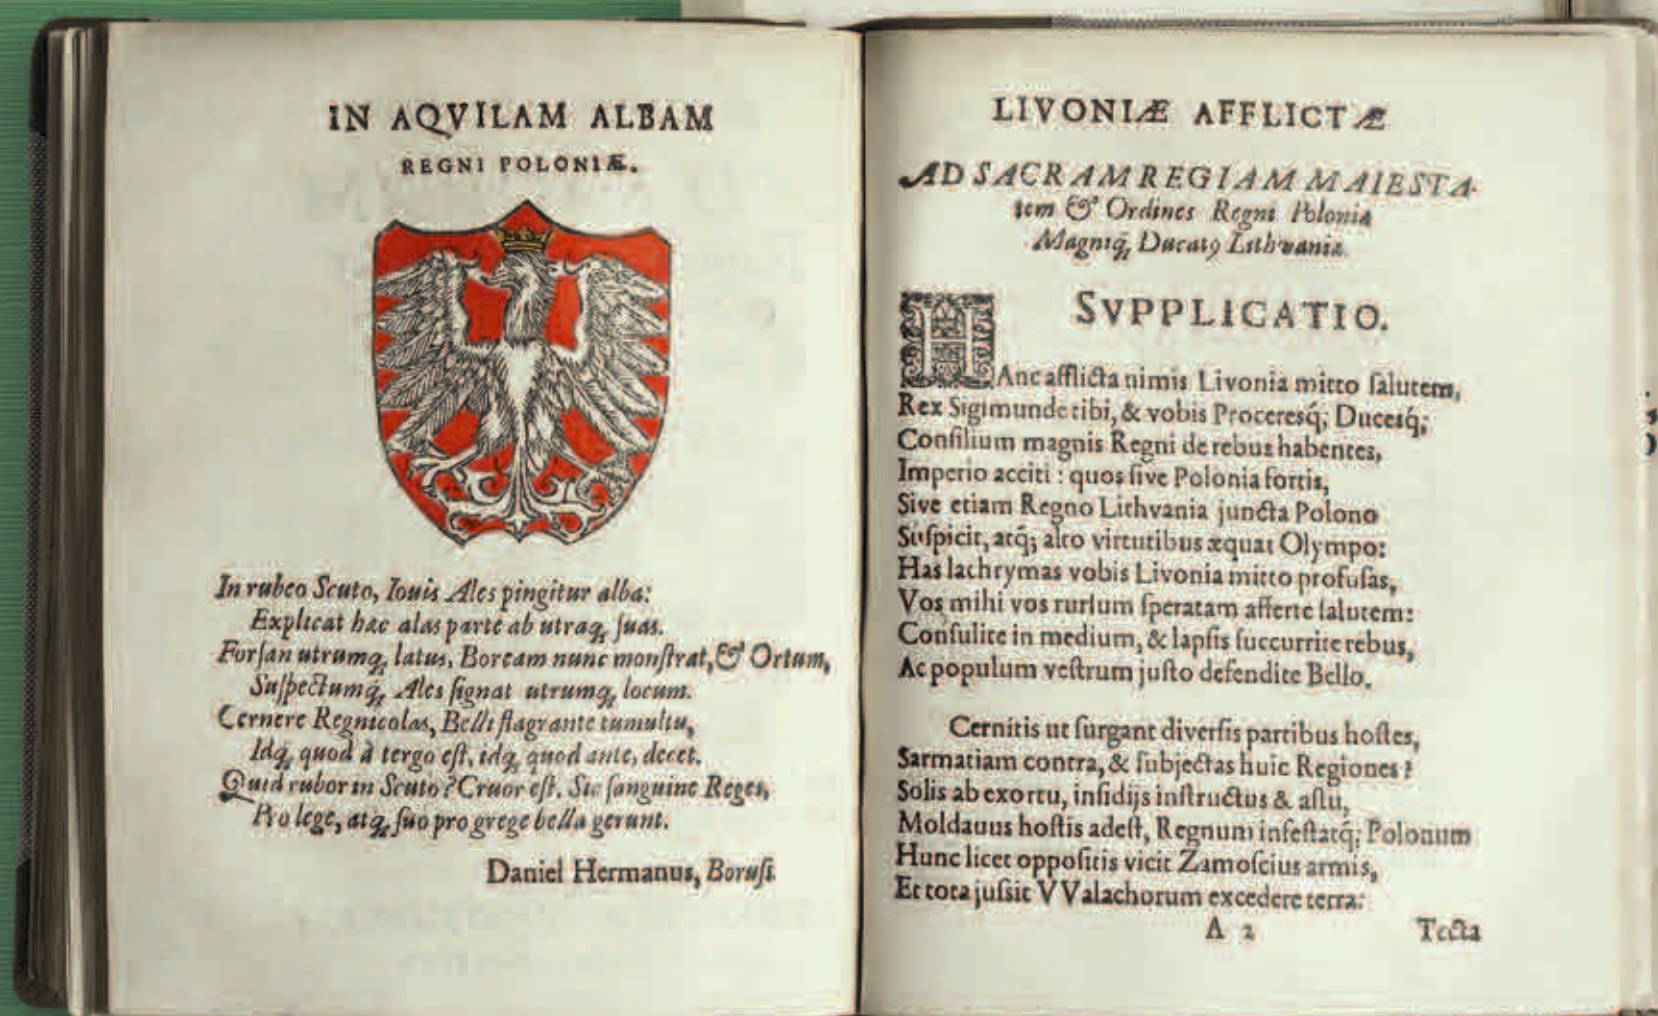 IN AQVILAM ALBAM
REGNI POLONIÆ.
In rubeo Scuto, Iouis Ales pingitur alba:
Explicat hac alas parte ab utraq; suas.
Forſan utrumq; latus, Boream nunc monſtrat, & Ortum,
Suſpectumq́; Ales ſignat utrumq; locum.
Cernere Regnicolas, Belli flagrante tumultu,
Idq; quod à tergo eſt, idq; quod ante, decet.
Quid rubor in Scuto? Cruor eſt. Sic ſanguine Reges,
Pro lege, atq; ſuo pro grege bella gerunt.
Daniel Hermanus, Boruſſ.
LIVONIÆ AFFLICTÆ
AD SACRAM REGIAM MAIESTA-
tem & Ordines Regni Poloniæ
Magniq́; Ducatꝰ Lithvaniæ.
SVPPLICATIO.
HAnc afflicta nimis Livonia mitto ſalutem,
Rex Sigimunde tibi, & vobis Proceresq́; Ducesq́;
Conſilium magnis Regni de rebus habentes,
Imperio acciti: quos ſive Polonia fortis,
Sive etiam Regno Lithvania juncta Polono
Suſpicit, atq́; alto virtutibus æquat Olympo:
Has lachrymas vobis Livonia mitto profuſas,
Vos mihi vos rurſum ſperatam afferte ſalutem:
Conſulite in medium, & lapſis ſuccurrite rebus,
Ac populum veſtrum juſto defendite Bello.
Cernitis ut ſurgant diverſis partibus hoſtes,
Sarmatiam contra, & ſubjectas huic Regiones?
Solis ab exortu, inſidijs inſtructus & aſtu,
Moldauus hoſtis adeſt, Regnum infeſtatq́; Polonum
Hunc licet oppoſitis vicit Zamoſcius armis,
Et tota juſſit VValachorum excedere terra:
A 2 Tecta